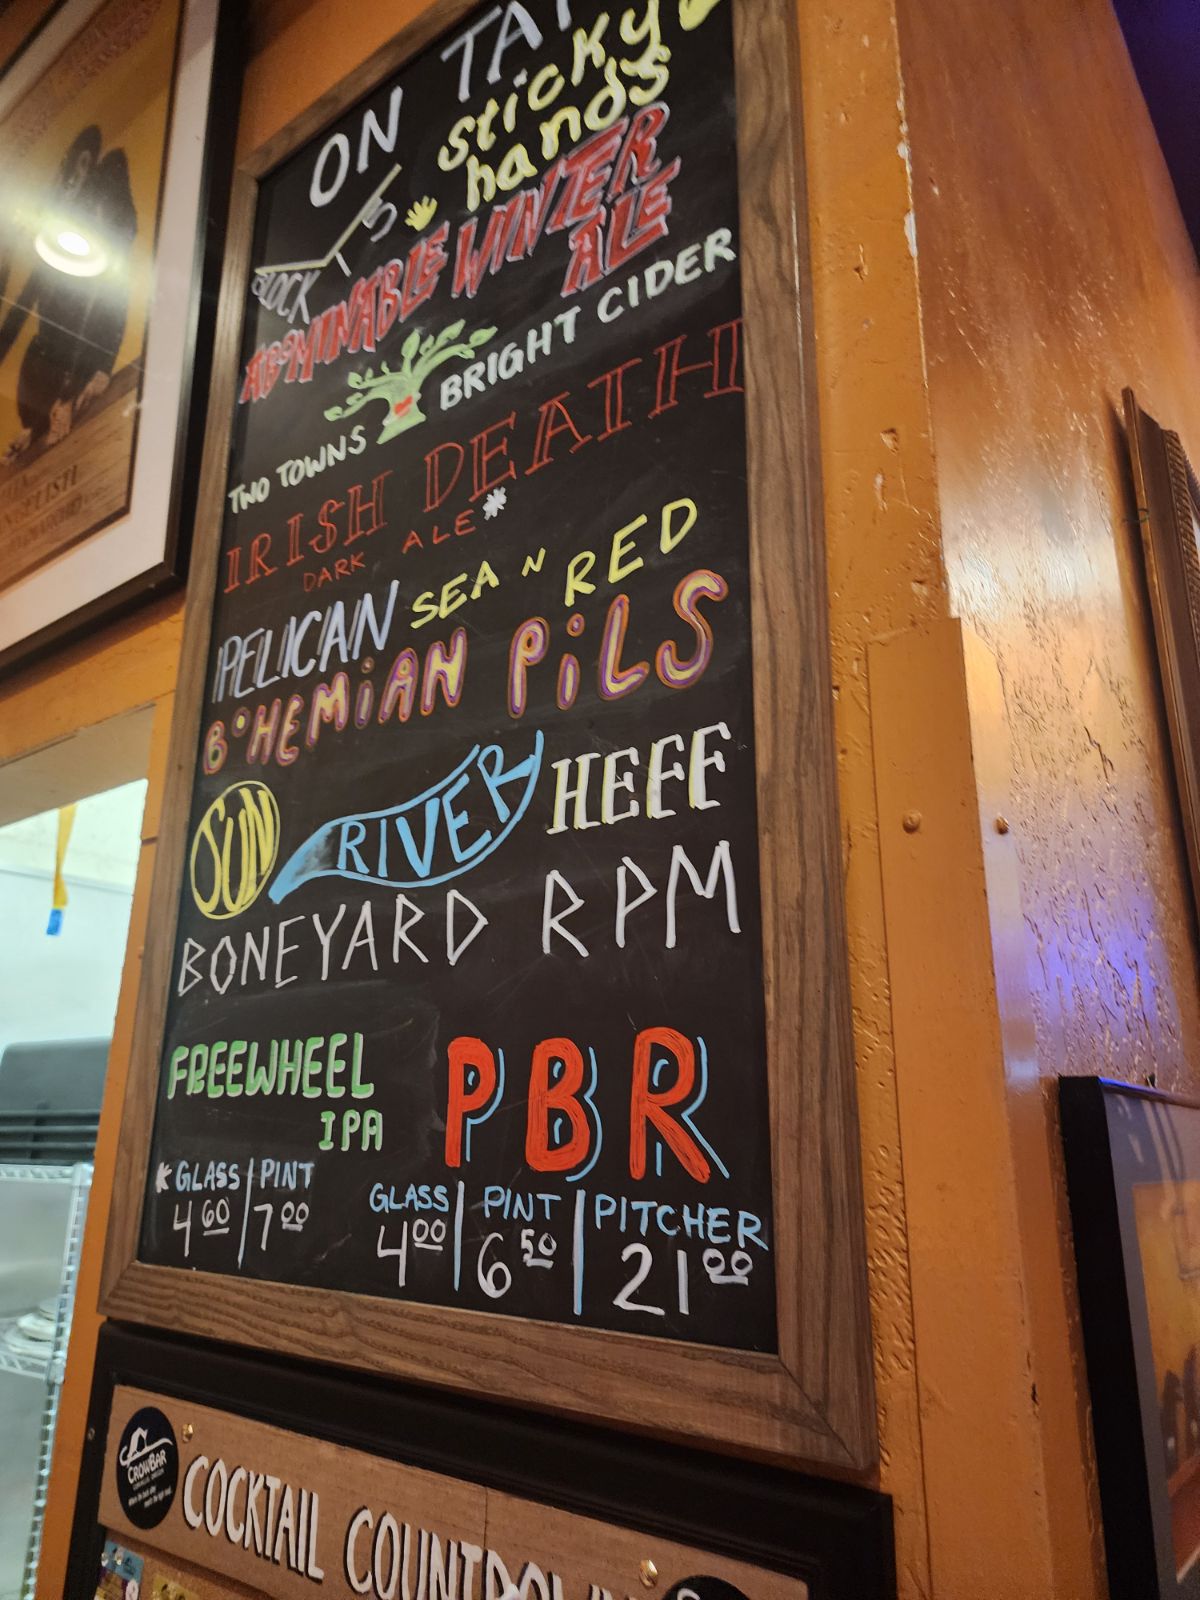 ON TAP
BLOCK 15 sticky
hands
ABOMINABLE WINTER
ALE
TWO TOWNS BRIGHT CIDER
IRISH DEATH
DARK ALE*
PELICAN SEA N RED
BOHEMIAN PiLS
SUN RIVER HEFF
BONEYARD RPM
FREEWHEEL
IPA
PBR
* GLASS | PINT
4 60 | 7 00
GLASS | PINT | PITCHER
4 00 | 6 50 | 21 00
CROWBAR
COCKTAIL COUNTDOWN